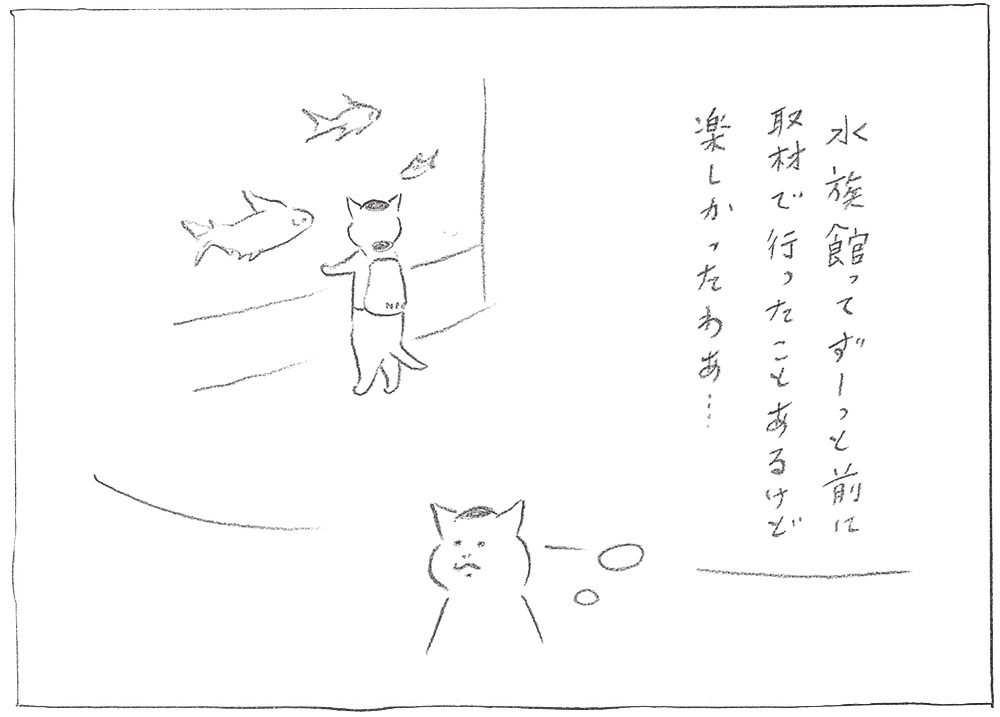 水族館ってずーっと前に
取材で行ったことあるけど
楽しかったわあ…